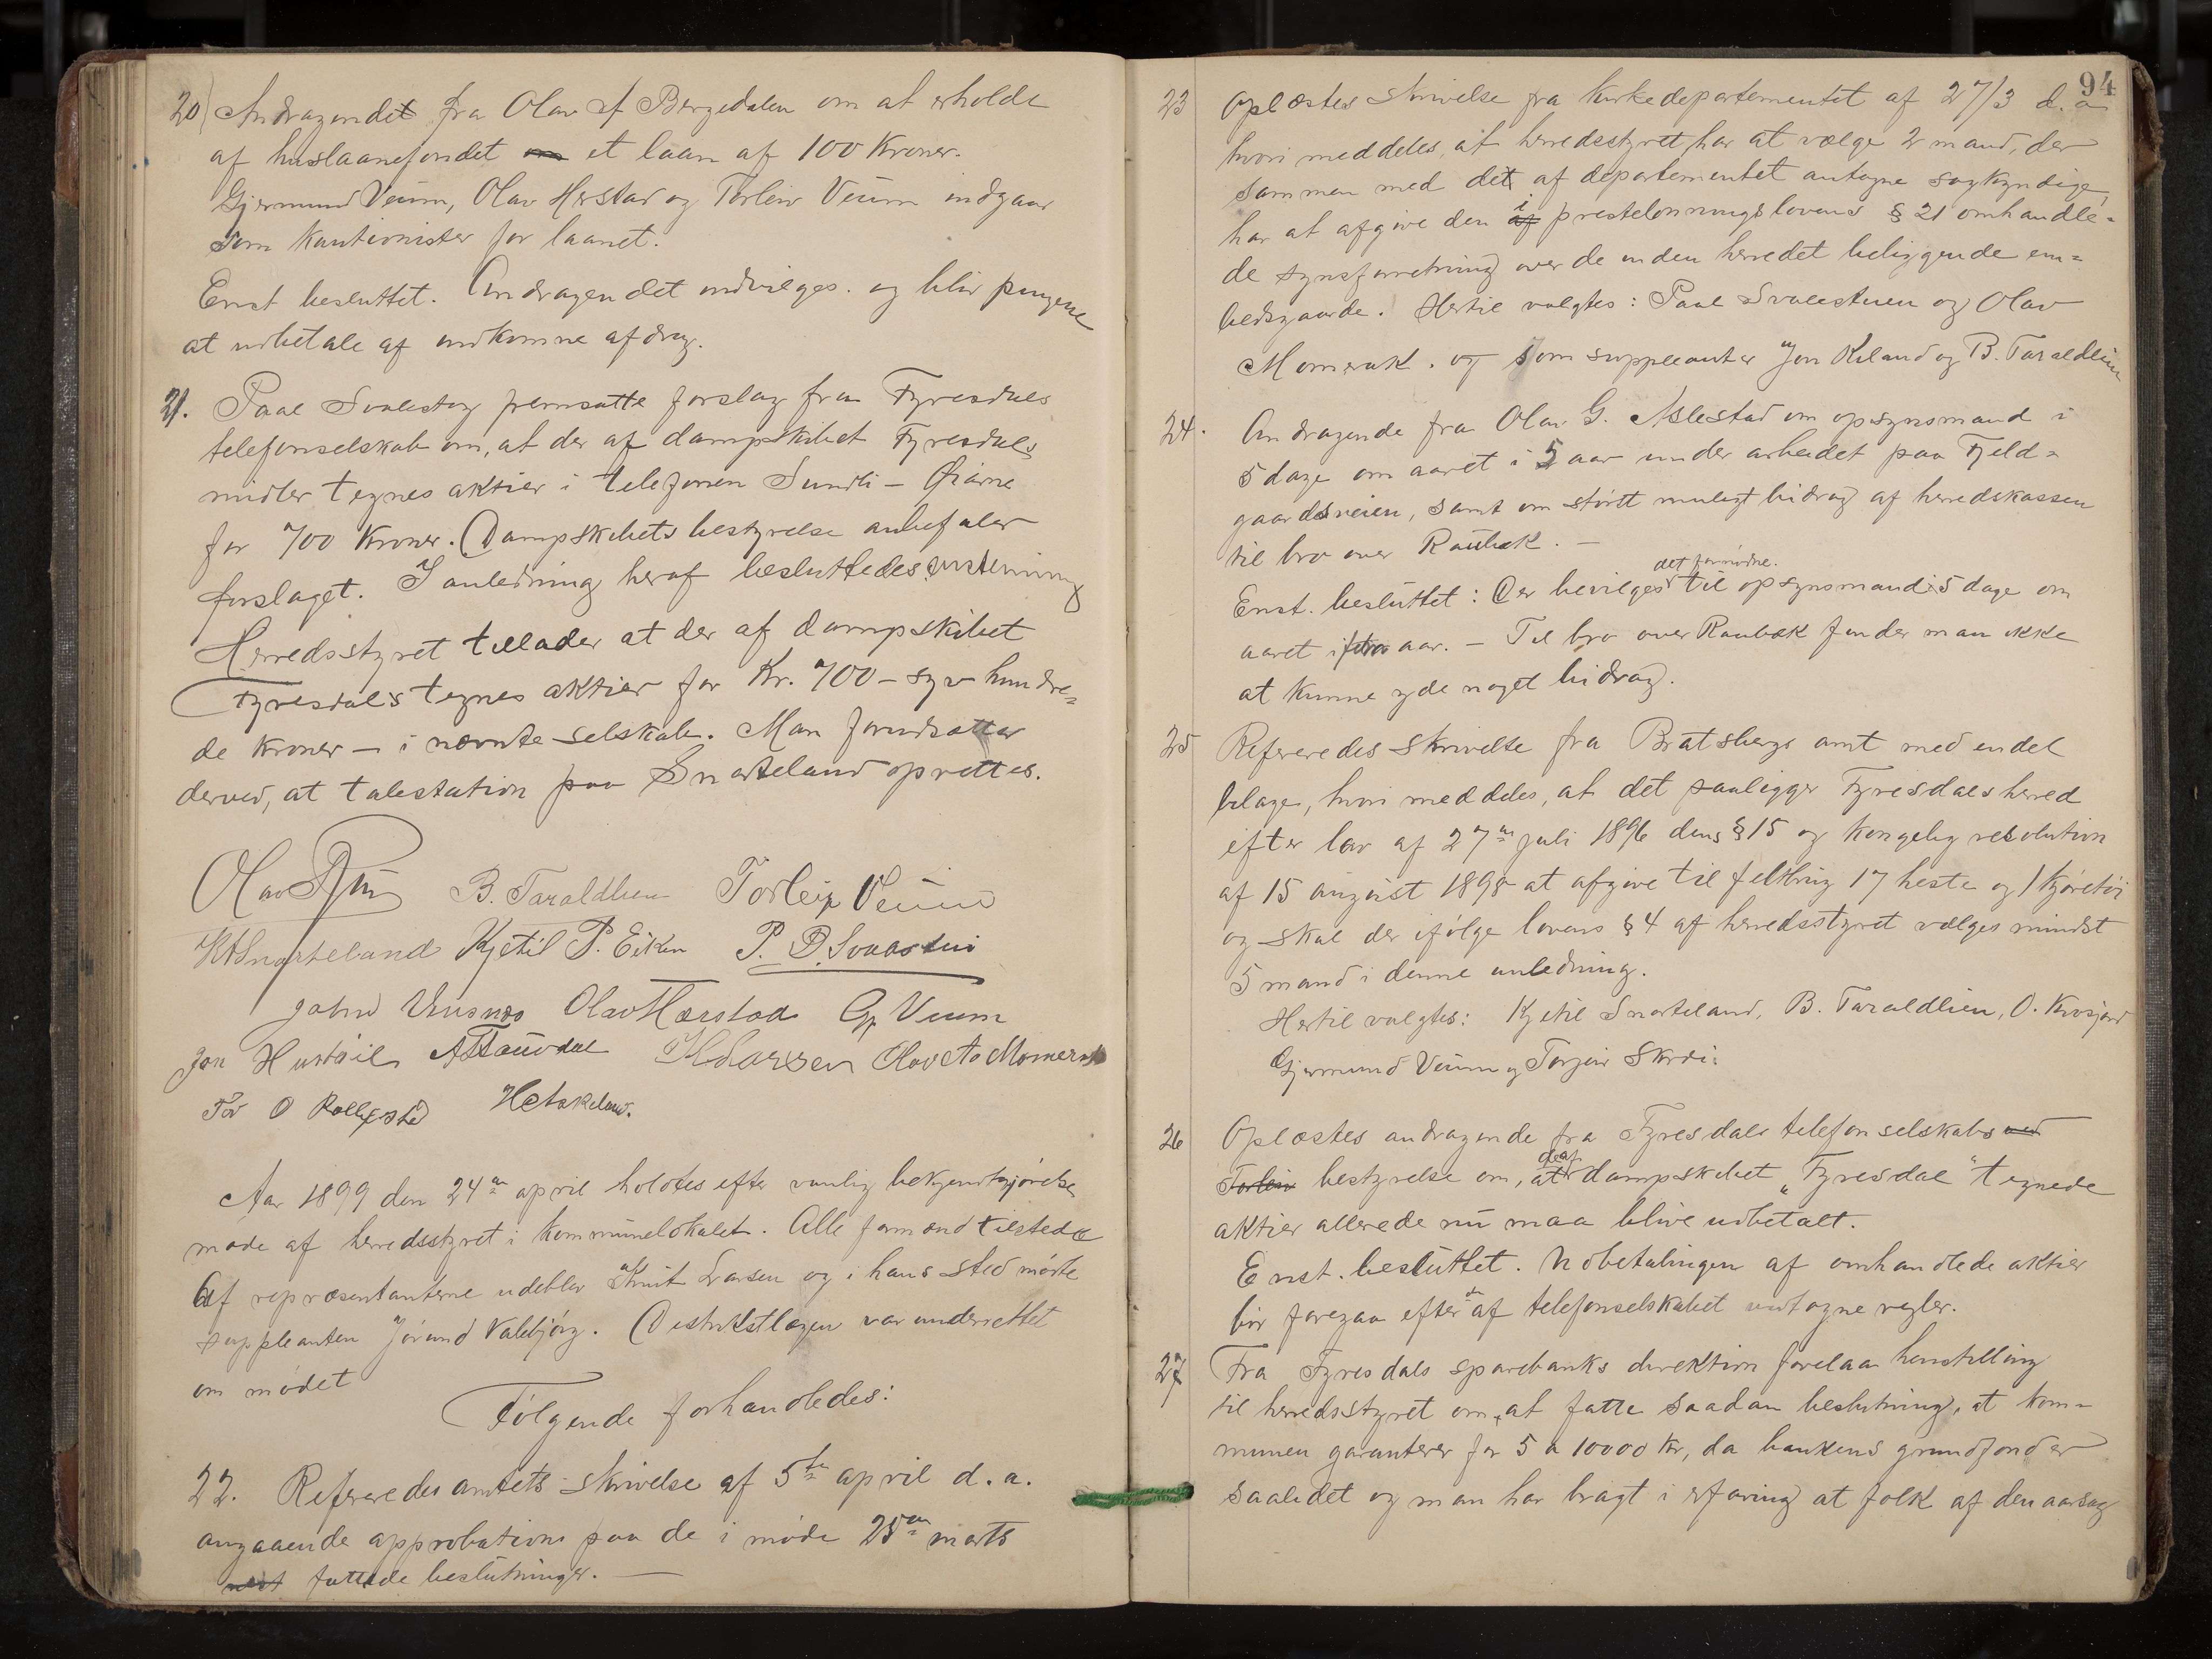 20) Andragendet fra Olav S Bergedalen om at erholde
af huslaanefondet om et laan af 100 Kroner.
Gjermund Veum, Olav Hærstad og Torleiv Veum indgaar
som kautionister for laanet.
Enst besluttet. Andragendet indvilges. og blir pengene
at udbetale af indkomne afdrag.
21. Paal Svalestog fremsatte forslag fra Fyresdals
telefonselskab om, at der af dampskibet Fyresdals
midler tegnes aktier i telefonen Sundli - Øiarne
for 700 Kroner. Dampskibets bestyrelse anbefaler
forslaget. I anledning heraf besluttedes enstemmig
Herredsstyret tillader at der af dampskibet
Fyresdals tegnes aktier for Kr. 700 - syv hundre=
de kroner - i nævnte selskab. Man forudsætter
derved, at talestation paa Snarteland oprettes.
B. Taraldlien Torleiv Veum
K Snarteland Kjetil P. Eiken P. P. Svaastui
John Vensnes Olav Hærstad Gj. Veum
Jon Hustøil A Taurdal K Larsen Olav A Momerak
Tov O Rollefstad
Aar 1899 den 24de april holdtes efter vanlig bekjendtgjørelse
møde af herredsstyret i kommunelokalet. Alle formænd tilstede
Af repræsentanterne udeblev Knut Larsen og i hans sted mødte
suppleanten Jørund Valebjørg. Distriktslægen var underrettet
om mødet
Følgende forhandledes:
22. Refereredes amtets skrivelse af 5te april d. a.
angaaende approbation paa de i møde 25de marts
næst fattede beslutninger. —
94
23 Oplæstes skrivelse fra Kirkedepartementet af 27/3 d. a
hvori meddeles, at herredsstyret har at vælge 2 mand, der
sammen med det af departementet antagne sagkyndige,
har at afgive den af i prestelønningslovens § 21 omhandle=
de synsforretning over de inden herredet beliggende em=
bedsgaarde. Hertil valgtes: Paal Svalestuen og Olav
Momerak. og som suppleanter Jon Kiland og B. Taraldlien
24. Andragende fra Olav G. Aslestad om opsynsmand i
5 dage om aaret i 5 aar under arbeidet paa Fjeld=
gaardsveien, samt om størst muligt bidrag af herredskassen
til bro over Raubæk. —
Enst. besluttet: Der bevilges det fornødne. til opsynsmand i 5 dage om
aaret i fem aar. - Til bro over Raubæk finder man ikke
at kunne yde noget bidrag.
25 Refereredes skrivelse fra Bratsbergs amt med endel
bilage, hvori meddeles, at det paaligger Fyresdals herred
efter lov af 27de juli 1896 dens § 15 og kongelig resolution
af 15 august 1898 at afgive til feltbrug 17 heste og 1 kjøretøi
og skal der ifølge lovens § 4 af herredsstyret vælges mindst
5 mand i denne anledning.
Hertil valgtes: Kjetil Snarteland, B. Taraldlien, O. Kvosjord
Gjermund Veum og Torjus Skrei:
26 Oplæstes andragende fra Fyresdals telefonselskabs ved
Torleiv bestyrelse om, at de af dampskibet "Fyresdal" tegnede
aktier allerede nu maa blive udbetalt.
Enst. besluttet. Udbetalingen af omhandlede aktier
bør foregaa efter de af telefonselskabet vedtagne regler.
27 Fra Fyresdals sparebanks direktion forelaa henstilling
til herredsstyret om, at fatte saadan beslutning, at kom=
munen garanterer for 5 a 10000 kr, da bankens grundfond er
saalidet og man har bragt i erfaring at folk af den aarsag